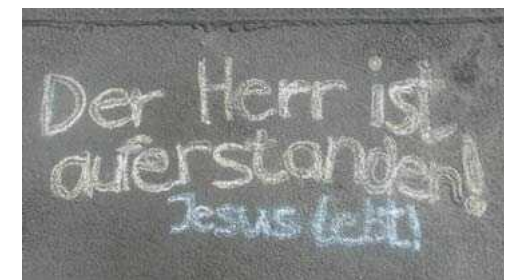 Der Herr ist
auferstanden!
Jesus lebt!